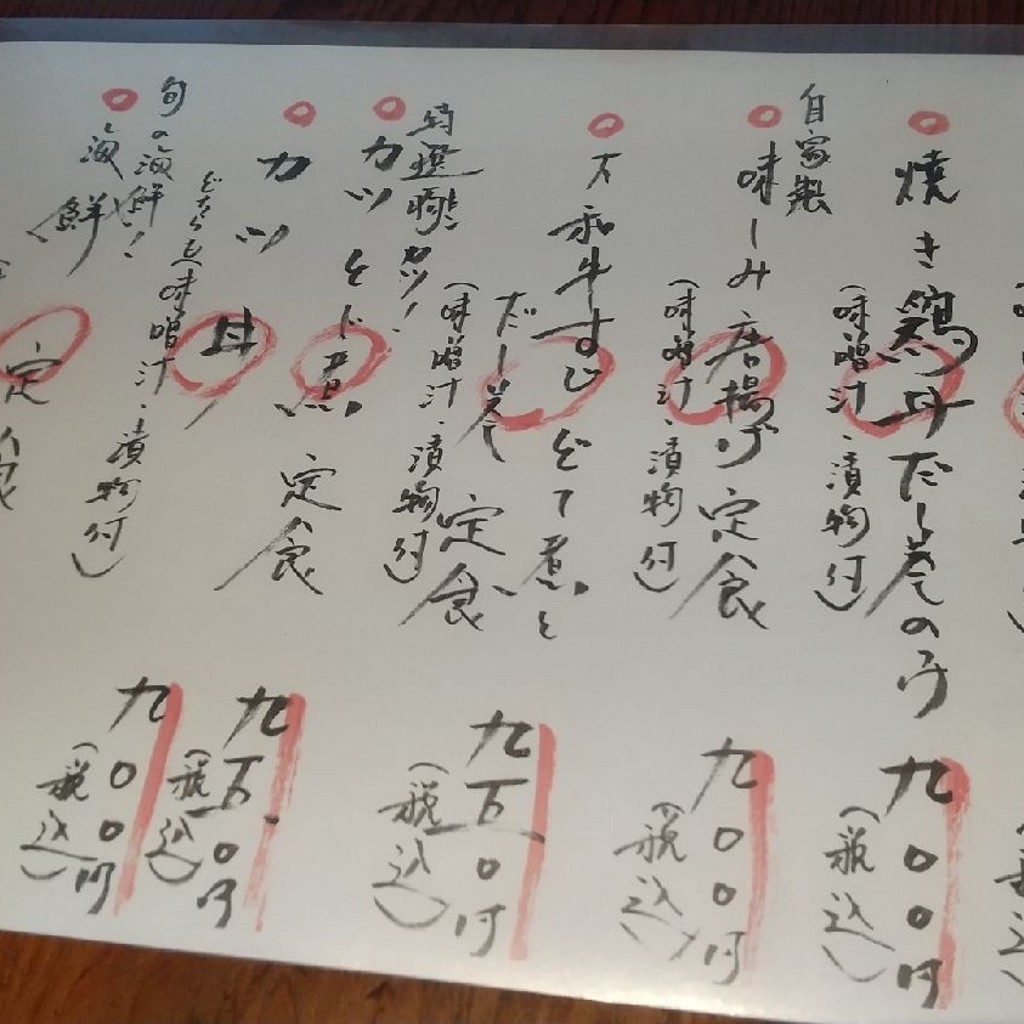 焼き鶏丼だし巻のり
(味噌汁・漬物付)
九〇〇円
(税込)
自家製
味しみ唐揚げ定食
(味噌汁・漬物付)
九〇〇円
(税込)
和牛すじどて煮と
だし巻
定食
(味噌汁・漬物付)
九五〇円
(税込)
特選豚カツ!
カツとじ煮定食
カツ丼
どちらも(味噌汁・漬物付)
九五〇円
(税込)
九〇〇円
(税込)
旬の海鮮!
海鮮
定食